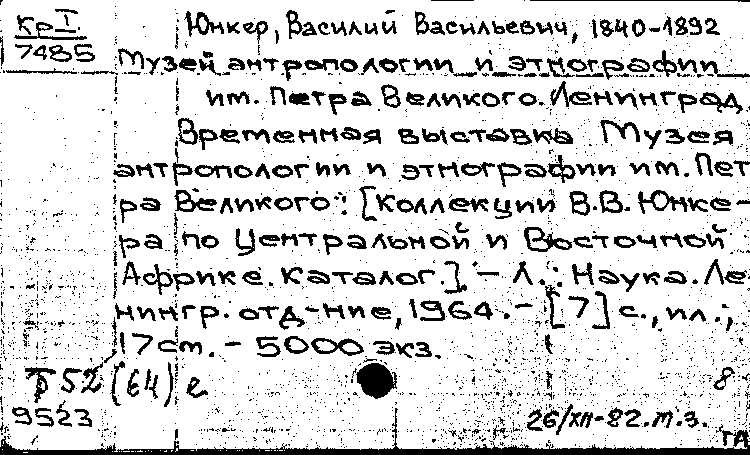 Кр I
7485
Юнкер, Василий Васильевич, 1840-1892
Музей антропологии и этнографии
им. Петра Великого. Ленинград.
Временная выставка Музея
антропологии и этнографии им. Пет
ра Великого: [Коллекции В.В. Юнке-
ра по Центральной и Восточной
Африке. Каталог]. – Л.: Наука. Ле
нингр. отд-ние, 1964. – [7] с., ил.;
17 см. – 5000 экз.
Т52(64)е
8
9523
26/XII-82. т.з.
ГА